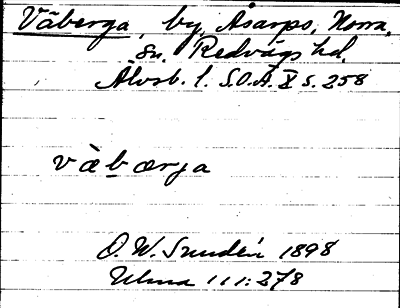 Våberga, by, Åsarps, Norra,
sn. Redvägs hd.
Älvsb. l. S.O.Ä. X s. 258
våbærga
O. W. Sundén 1898
Ulma 111:278